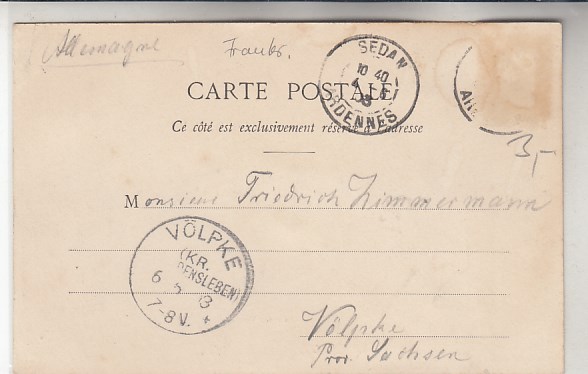 Allemagne
Frankr.
SEDAN
10 40
ARDENNES
CARTE POSTALE
Ce côté est exclusivement réservé à l'adresse
3,-
Monsieur Friedrich Zimmermann
VÖLPKE
(KR.
7-8V.
Völpke
Prov. Sachsen